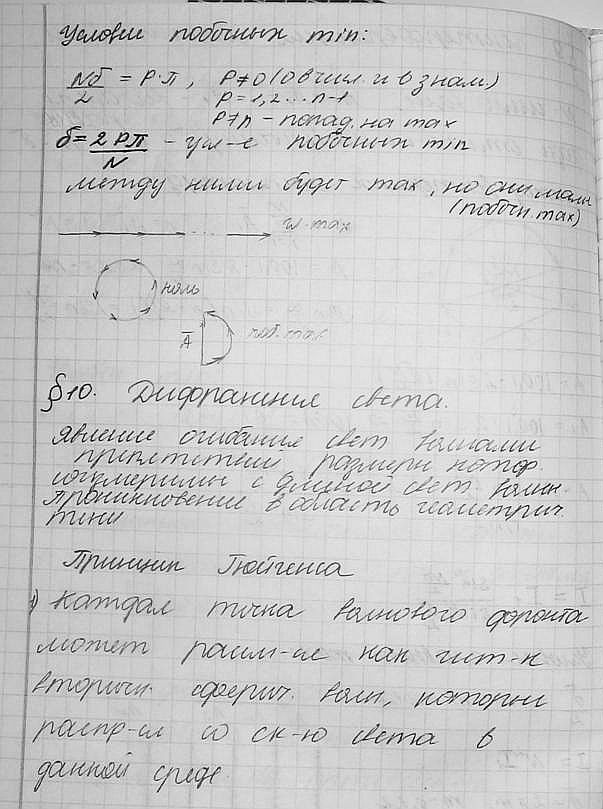 Условие побочных min:
Nδ/2 = p·π, p≠0 (0 в числ. и в знам.)
p=1,2...n-1
p≠n - попад. на max
δ = 2pπ/N - усл-е побочных min
между ними будет max, но они малы
(побочн. max)
гл. max
ноль
A поб. max
§10. Дифракция света.
Явление огибания свет. волнами
препятствий размеры котор.
соизмеримы с длиной свет. волн.
проникновение в область геометрич.
тени
Принцип Гюйгенса
1) Каждая точка волнового фронта
может рассм-ся как ист-к
вторичн. сферич. волн, которые
распр-ся со ск-ю света в
данной среде.